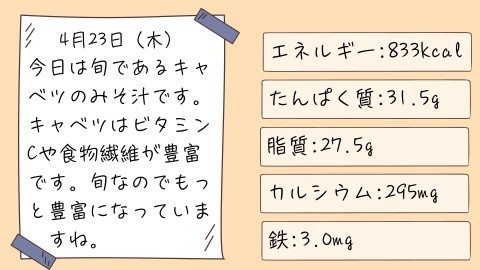 4月23日（木）
今日は旬であるキャ
ベツのみそ汁です。
キャベツはビタミン
Cや食物繊維が豊富
です。旬なのでもっ
と豊富になっていま
すね。
エネルギー:833kcal
たんぱく質:31.5g
脂質:27.5g
カルシウム:295mg
鉄:3.0mg